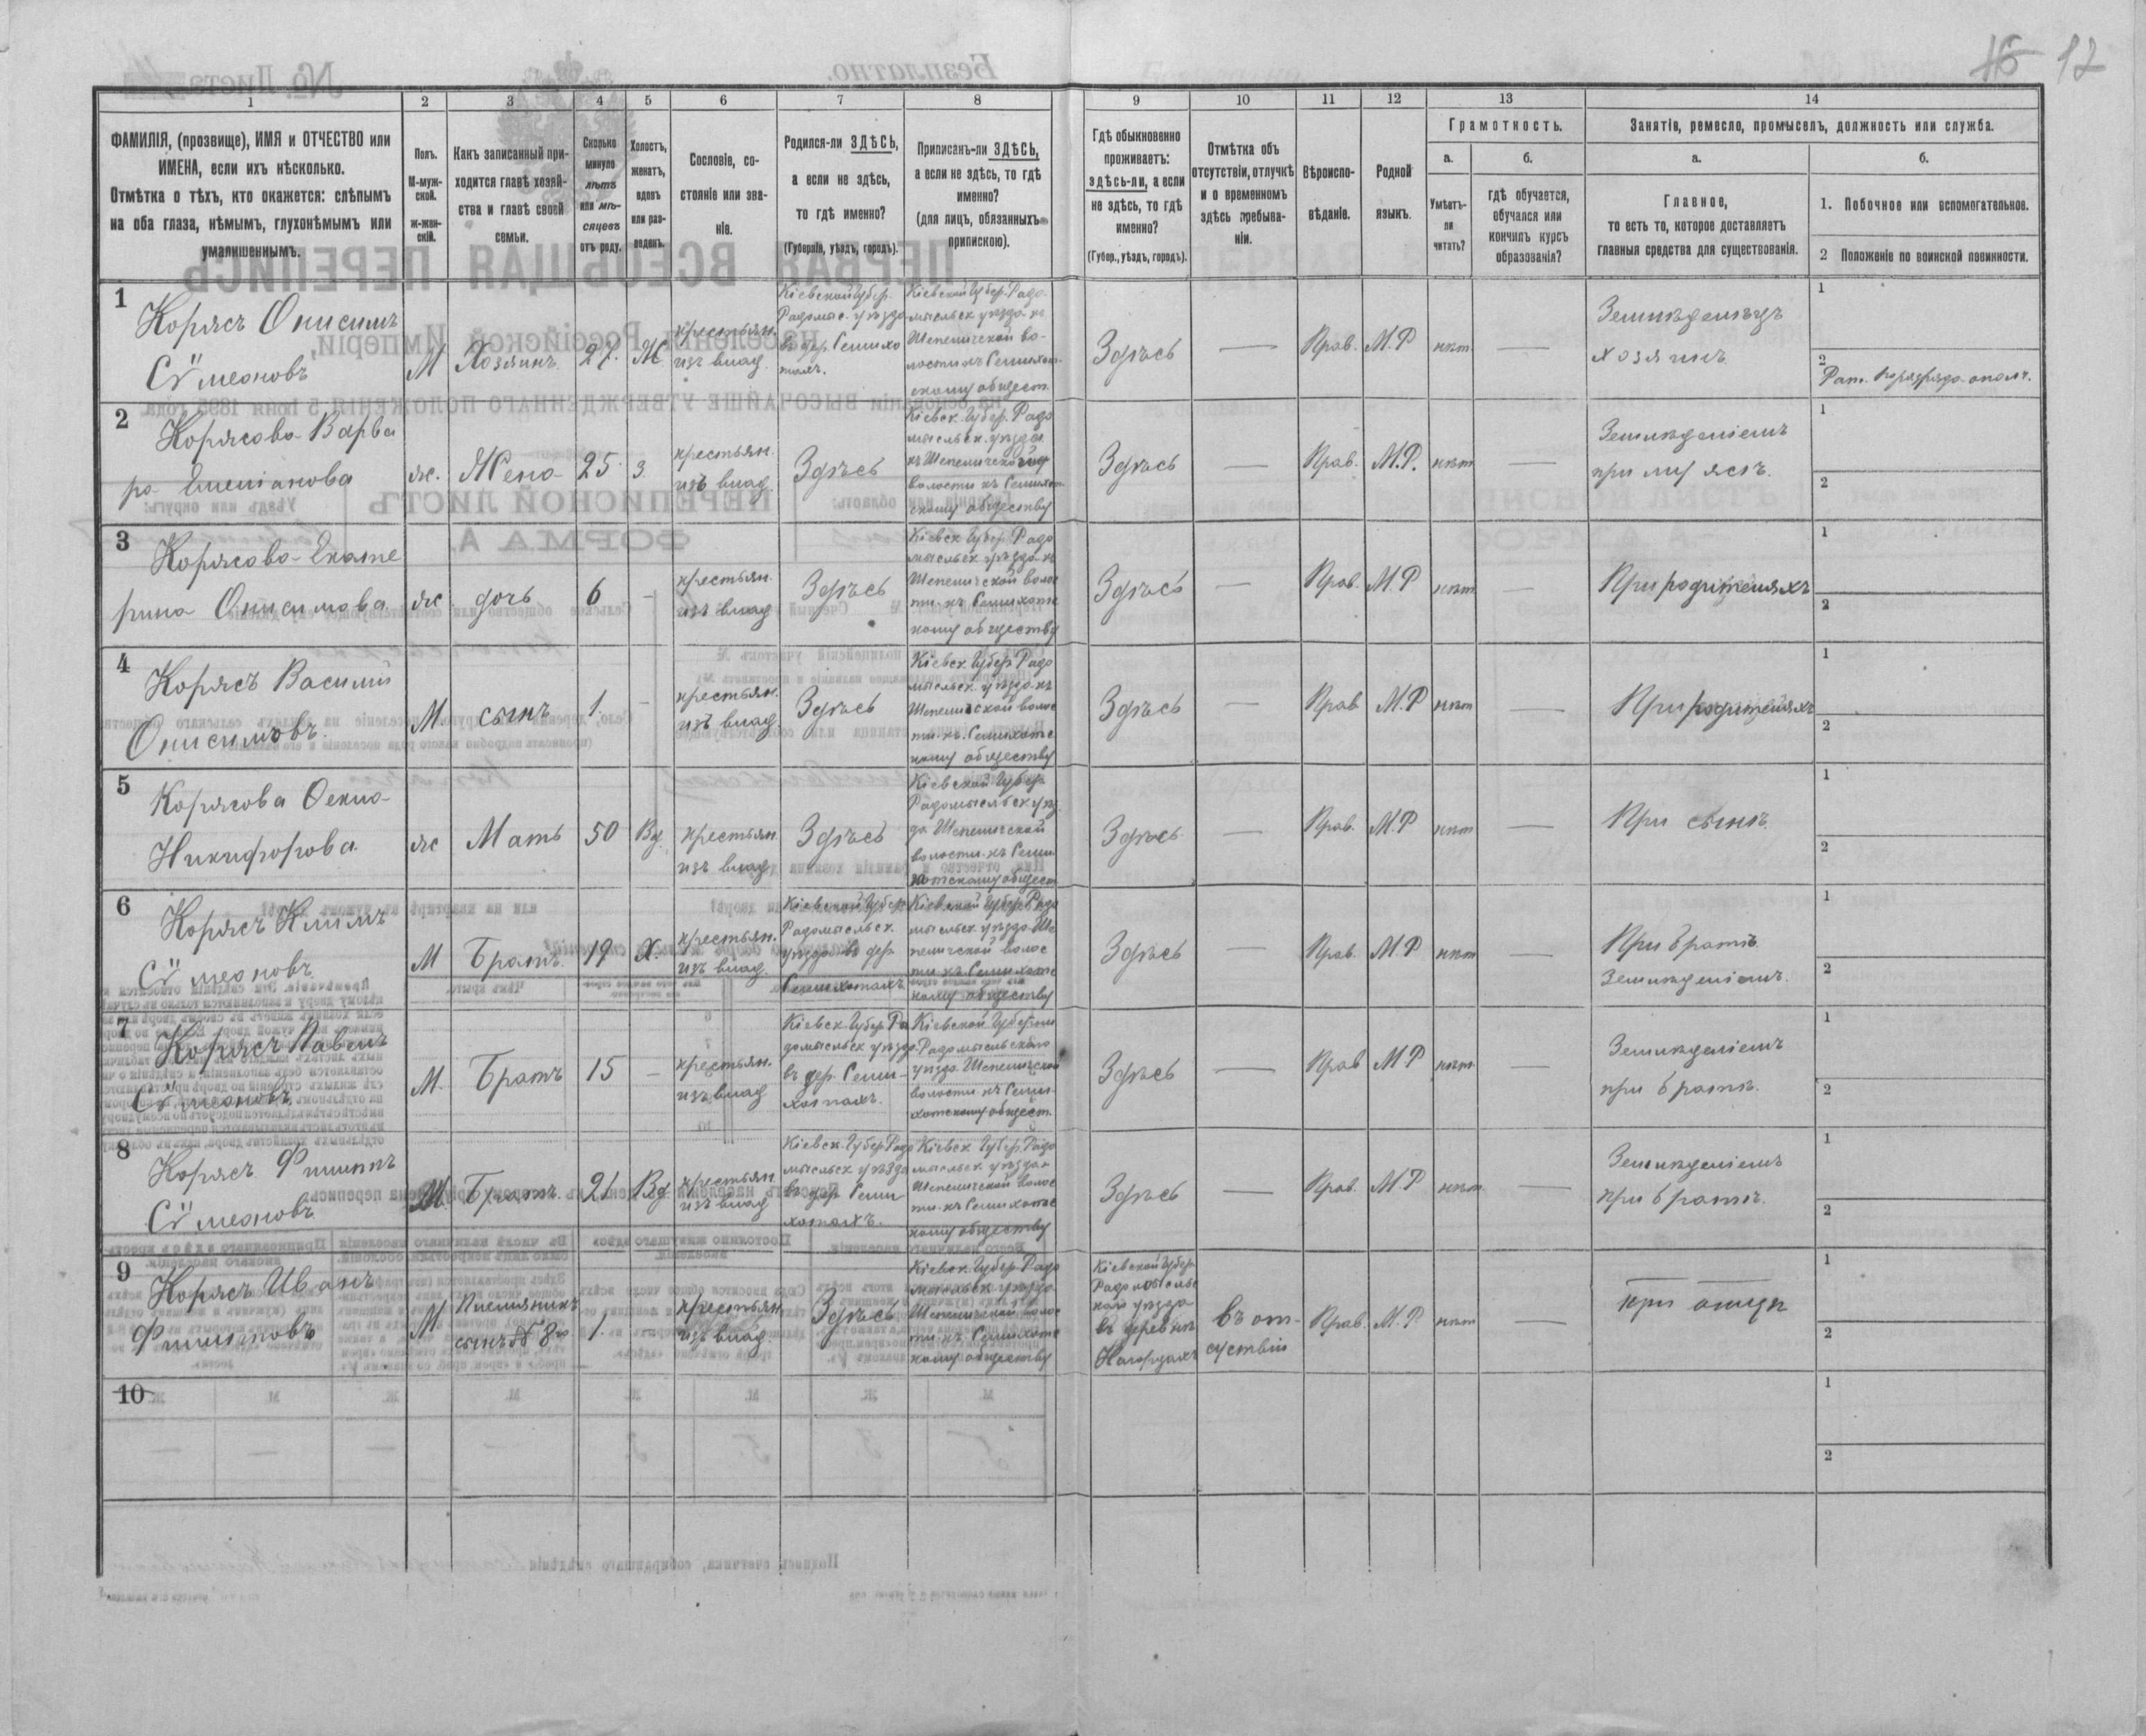 16 12
1 2 3 4 5 6 7 8 9 10 11 12 13 14
ФАМИЛІЯ, (прозвище), ИМЯ и ОТЧЕСТВО или
ИМЕНА, если ихъ нѣсколько.
Отмѣтка о тѣхъ, кто окажется: слѣпымъ
на оба глаза, нѣмымъ, глухонѣмымъ или
умалишеннымъ.
Полъ.
М-муж-
ской.
ж-жен-
скій.
Какъ записанный при-
ходится главѣ хозяй-
ства и главѣ своей
семьи.
Сколько
минуло
лѣтъ
или мѣ-
сяцевъ
отъ роду.
Холостъ,
женатъ,
вдовъ
или раз-
веденъ.
Сословіе, со-
стояніе или зва-
ніе.
Родился-ли ЗДѢСЬ,
а если не здѣсь,
то гдѣ именно?
(Губернія, уѣздъ, городъ).
Приписанъ-ли ЗДѢСЬ,
а если не здѣсь, то гдѣ
именно?
(для лицъ, обязанныхъ
припискою).
Гдѣ обыкновенно
проживаетъ:
здѣсь-ли, а если
не здѣсь, то гдѣ
именно?
(Губер., уѣздъ, городъ).
Отмѣтка объ
отсутствіи, отлучкѣ
и о временномъ
здѣсь пребыва-
ніи.
Вѣроиспо-
вѣданіе.
Родной
языкъ.
Грамотность.
а.
Умѣетъ-
ли
читать?
б.
гдѣ обучается,
обучался или
кончилъ курсъ
образованія?
Занятіе, ремесло, промыселъ, должность или служба.
а.
Главное,
то есть то, которое доставляетъ
главныя средства для существованія.
б.
1. Побочное или вспомогательное.
2 Положеніе по воинской повинности.
1
Корясъ Онисимъ
Сѵмеоновъ
М
Хозяинъ
27.
Ж
крестьян.
изъ влад.
Кіевской Губер.
Радомыс. уѣзда
въ дер. Семихо
тахъ.
Кіевской Губер. Радо-
мысльск уѣзда къ
Шепеличской во-
лости къ Семихот-
скому общест.
Здѣсь
—
Прав.
М.Р
нѣт
—
Земледѣлецъ
хозяинъ
1
2
Рат. 1го разряда ополч.
2
Корясова Варва
ра Емеліанова
ж.
Жена
25
З.
крестьян.
изъ влад.
Здѣсь
Кіевск. Губер. Радо
мысльск. уѣзда
къ Шепеличской
волости къ Семихот-
скому обществу
Здѣсь
—
Прав.
М.Р.
нѣт
—
Земледѣліемъ
при мужѣ
1
2
3
Корясова Екате
рина Онисимова
ж
дочь
6
—
крестьян.
изъ влад
Здѣсь
Кіевск Губер Радо
мысльск уѣзда къ
Шепеличской волос
ти къ Семихотс
кому обществу
Здѣсь
—
Прав.
М.Р
нѣт
—
При родителяхъ
1
2
4
Корясъ Василій
Онисимовъ.
М
сынъ
1.
—
крестьян.
изъ влад
Здѣсь
Кіевск. Губер Радо
мысльск. уѣзда къ
Шепеличской волос
ти къ Семихотс
кому обществу
Здѣсь
—
Прав
М.Р
нѣт
—
При родителяхъ
1
2
5
Корясова Оекла
Никифорова
ж
Мать
50
Вд.
крестьян
изъ влад
Здѣсь
Кіевской Губер
Радомысльск уѣз
да Шепеличской
волости къ Семи-
хотскому общест
Здѣсь
—
Прав.
М.Р
нѣт
—
При сынѣ
1
2
6
Корясъ Климъ
Сѵмеоновъ
М
Братъ.
19
Х.
крестьян.
изъ влад.
Кіевской Губер
Радомысльск.
уѣзда въ дер.
Семихотахъ
Кіевской Губер Радо
мысльск. уѣзда Ше
пеличской волос
ти къ Семихотс
кому обществу
Здѣсь
—
Прав.
М.Р
нѣт
—
При братѣ
Земледѣліемъ.
1
2
7
Корясъ Павелъ
Сѵмеоновъ
М
Братъ
15
—
крестьян.
изъ влад
Кіевск. Губер. Ра
домысльск уѣзда
въ дер. Семи-
хотахъ.
Кіевской Губерніи
Радомысльскаго
уѣзда Шепеличской
волости къ Семи-
хотскому общест.
Здѣсь
—
Прав
М Р
нѣт
—
Земледѣліемъ
при братѣ.
1
2
8
Корясъ Филипъ
Сѵмеоновъ
М.
Братъ
21
Вд
крестьян.
изъ влад
Кіевск. Губер Радо
мысльск уѣзда
въ дер Семи
хотахъ.
Кіевск Губер. Радо
мысльск. уѣзда
Шепеличской волос
ти къ Семихотс
кому обществу
Здѣсь
—
Прав.
М.Р
нѣт
—
Земледѣліемъ
при братѣ.
1
2
9
Корясъ Иванъ
Филиповъ
М
Племянникъ
сынъ № 8го
1.
крестьян
изъ влад
Здѣсь
Кіевск. Губер. Радо
мысльск уѣзда
Шепеличской волос
ти къ Семихотс
кому обществу
Кіевской Губер
Радомысльс
кой уѣзда
въ деревнѣ
Нагорцахъ
Въ от-
сутствіи
Прав.
М.Р
нѣт
—
при отцѣ
1
2
10
1
2